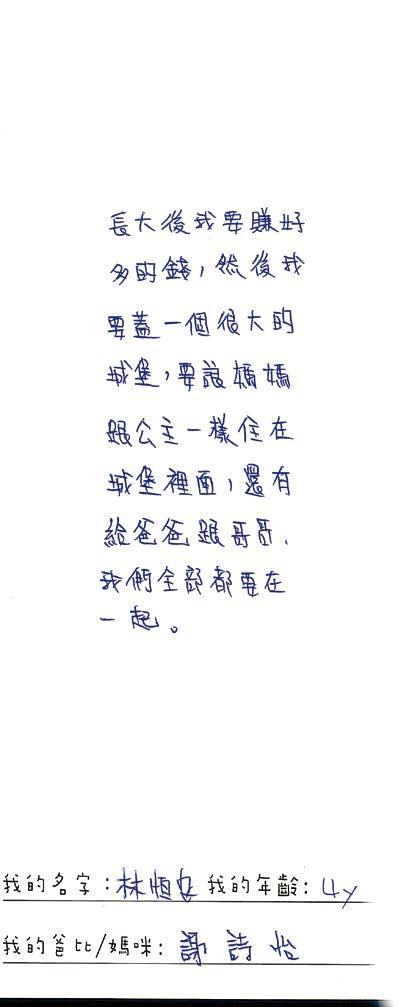 長大後我要賺好
多的錢,然後我
要蓋一個很大的
城堡,要讓媽媽
跟公主一樣住在
城堡裡面,還有
給爸爸跟哥哥、
我們全部都要在
一起。
我的名字:林恒安 我的年齡:4y
我的爸比/媽咪:謝詩怡